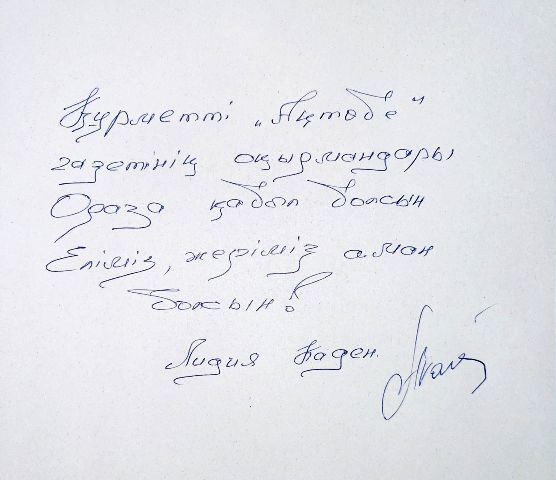 Құрметті "Ақтөбе"
газетінің оқырмандары
Ораза қабыл болсын
Еліміз, жеріміз аман
болсын!
Лидия Каден.